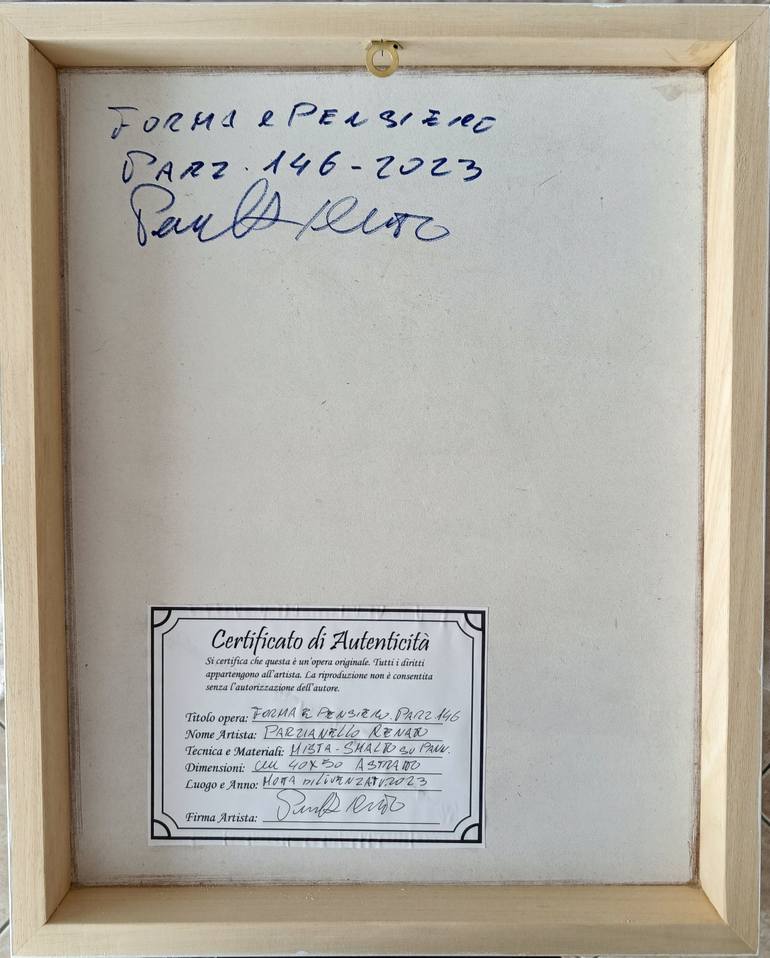 FORMA e PENSIERO
PARZ. 146-2023
Certificato di Autenticità
Si certifica che questa è un'opera originale. Tutti i diritti
appartengono all'artista. La riproduzione non è consentita
senza l'autorizzazione dell'autore.
Titolo opera: FORMA e PENSIERO. PARZ 146
Nome Artista: PARZIANELLO RENATO
Tecnica e Materiali: MISTA - SMALTO SU PANN.
Dimensioni: cm 40x50 ASTRATTO
Luogo e Anno: MOTTA DI LIVENZA TV 2023
Firma Artista: